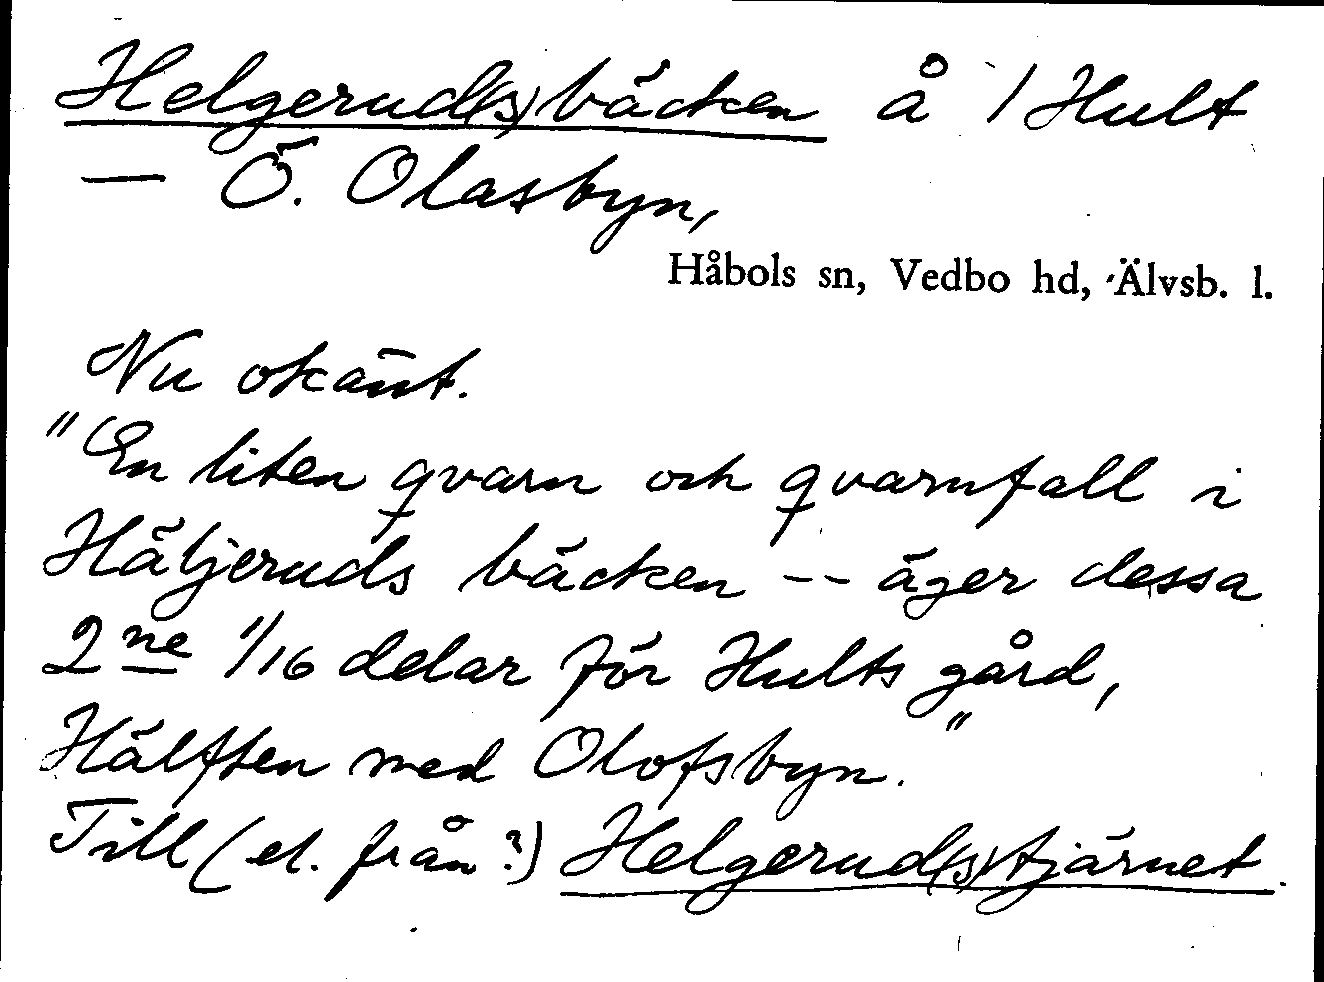 Helgerud(s)bäcken å 1 Hult
— Ö. Olasbyn,
Håbols sn, Vedbo hd, Älvsb. l.
Nu okänt.
"En liten qvarn och qvarnfall i
Häljeruds bäcken -- äger dessa
2ne 1/16 delar för Hults gård,
Hälften med Olofsbyn."
Till (el. från?) Helgerud(s)tjärnet.